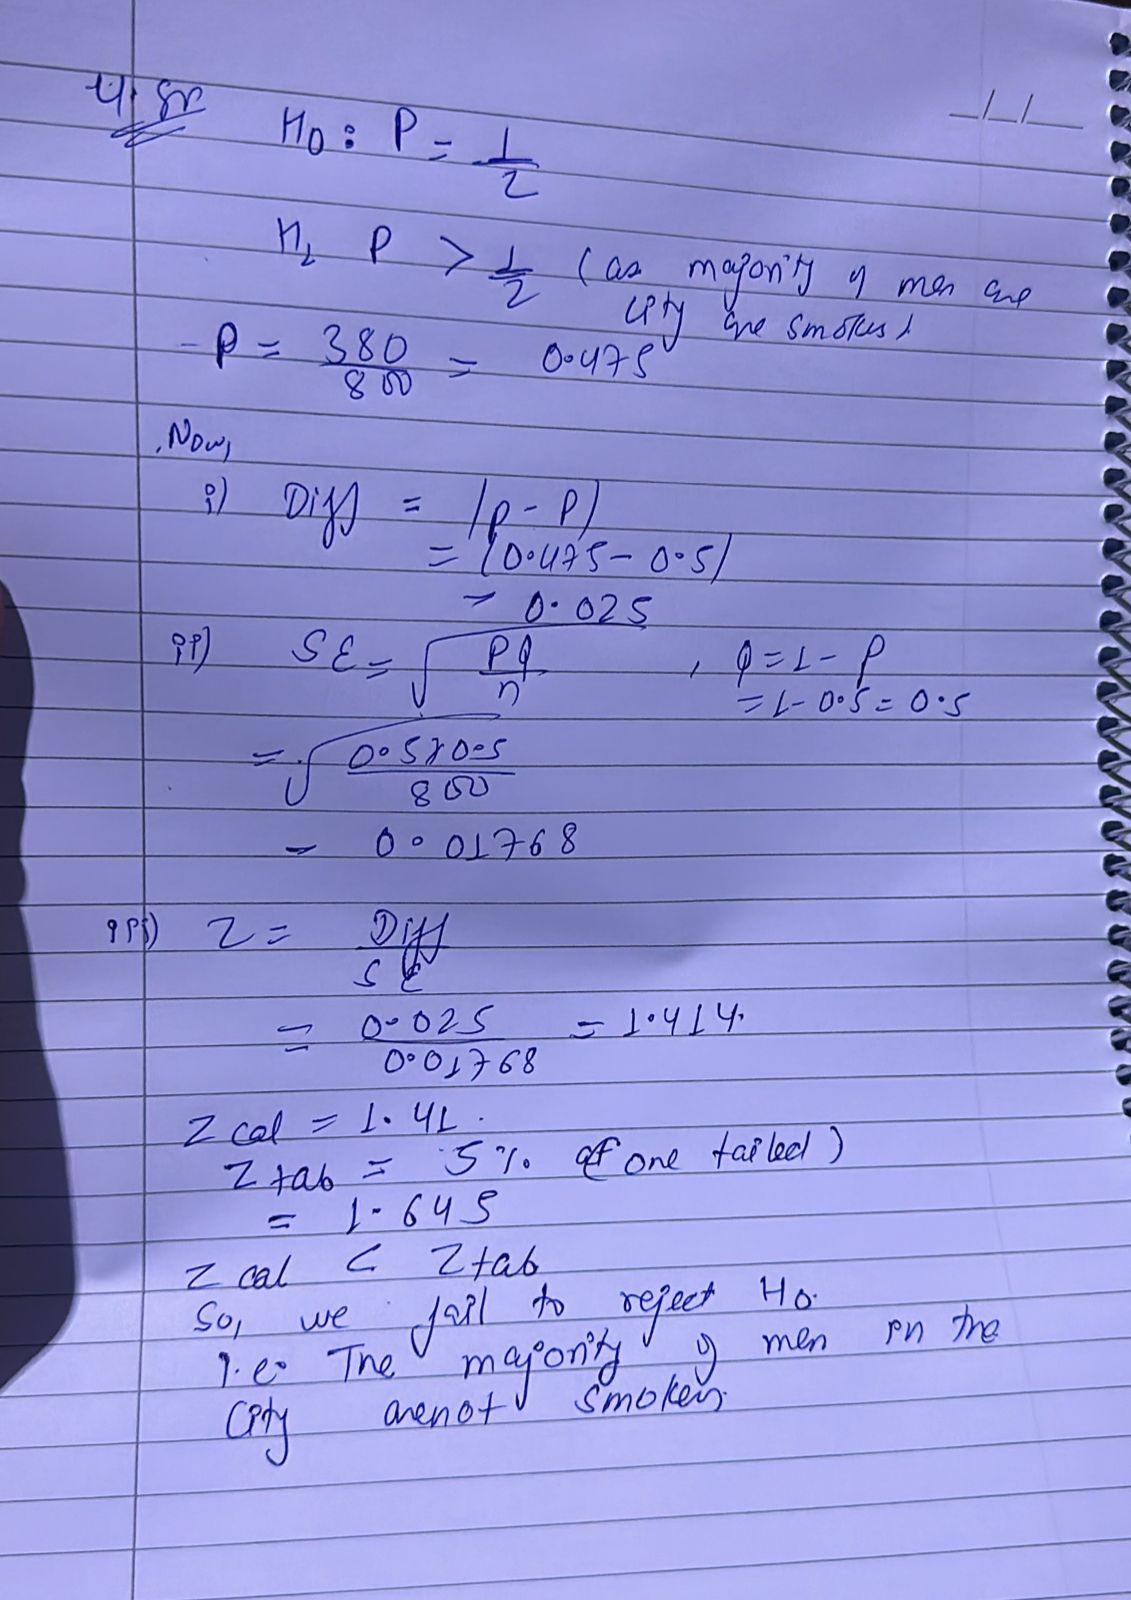 4. Sn
H0 : P = 1/2
H1 P > 1/2 (as majority of men are
city are smokers)
- P = 380/800 = 0.475
Now,
i) Diff = |p - P|
= |0.475 - 0.5|
= 0.025
ii) SE = √(PQ/n) , Q = 1 - P
= 1 - 0.5 = 0.5
= √(0.5x0.5/800)
= 0.01768
iii) Z = Diff/SE
= 0.025/0.01768 = 1.414.
Z cal = 1.41.
Z tab = 5% of one tailed)
= 1.645
Z cal < Z tab
So, we fail to reject H0.
i.e. The majority of men in the
city are not smokers.